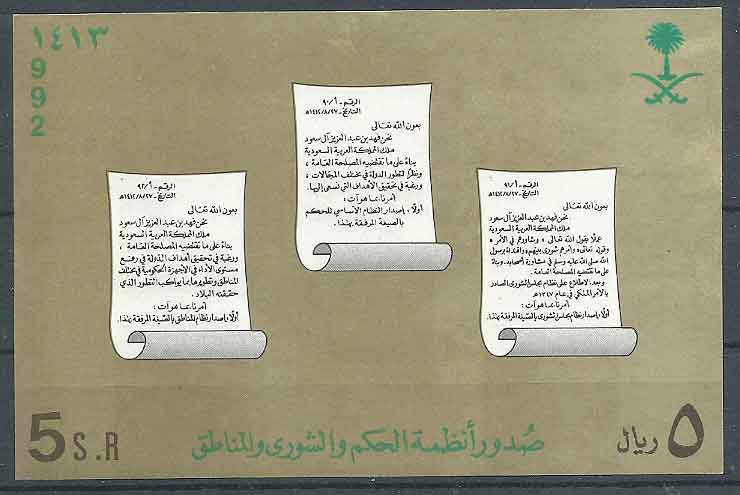 ١٤١٣
9
9
2
الرقم - أ/٩٠
التاريخ - ١٤١٢/٨/٢٧هـ
بعون الله تعالى
نحن فهد بن عبد العزيز آل سعود
ملك المملكة العربية السعودية
بناءً على ما تقتضيه المصلحة العامة ،
ونظرًا لتطور الدولة في مختلف المجالات ،
ورغبة في تحقيق الأهداف التي نسعى إليها.
أمرنا بما هو آت :
أولا ، إصدار النظام الأساسي للحكم
بالصيغة المرفقة بهذا.
الرقم - أ/٩١
التاريخ - ١٤١٢/٨/٢٧هـ
بعون الله تعالى
نحن فهد بن عبد العزيز آل سعود
ملك المملكة العربية السعودية
عملًا بقول الله تعالى « وشاورهم في الأمر »
وقوله تعالى « وأمرهم شورى بينهم » واقتداء برسول
الله صلى الله عليه وسلم في مشاورة أصحابه. وبناءً
على ما تقتضيه المصلحة العامة.
وبعد الاطلاع على نظام مجلس الشورى الصادر
بالأمر الملكي في عام ١٣٤٧هـ
أمرنا بما هو آت :
أولا ، إصدار نظام مجلس الشورى بالصيغة المرفقة بهذا.
الرقم - أ/٩٢
التاريخ - ١٤١٢/٨/٢٧هـ
بعون الله تعالى
نحن فهد بن عبد العزيز آل سعود
ملك المملكة العربية السعودية
بناءً على ما تقتضيه المصلحة العامة ،
ورغبة في تحقيق أهداف الدولة في رفع
مستوى الأداء في الأجهزة الحكومية في مختلف
المناطق وتطويرها بما يواكب التطور الذي
حققته البلاد.
أمرنا بما هو آت :
أولا ، إصدار نظام المناطق بالصيغة المرفقة بهذا.
صُدور أنظمة الحكم والشورى والمناطق
٥ ريال
5 S.R